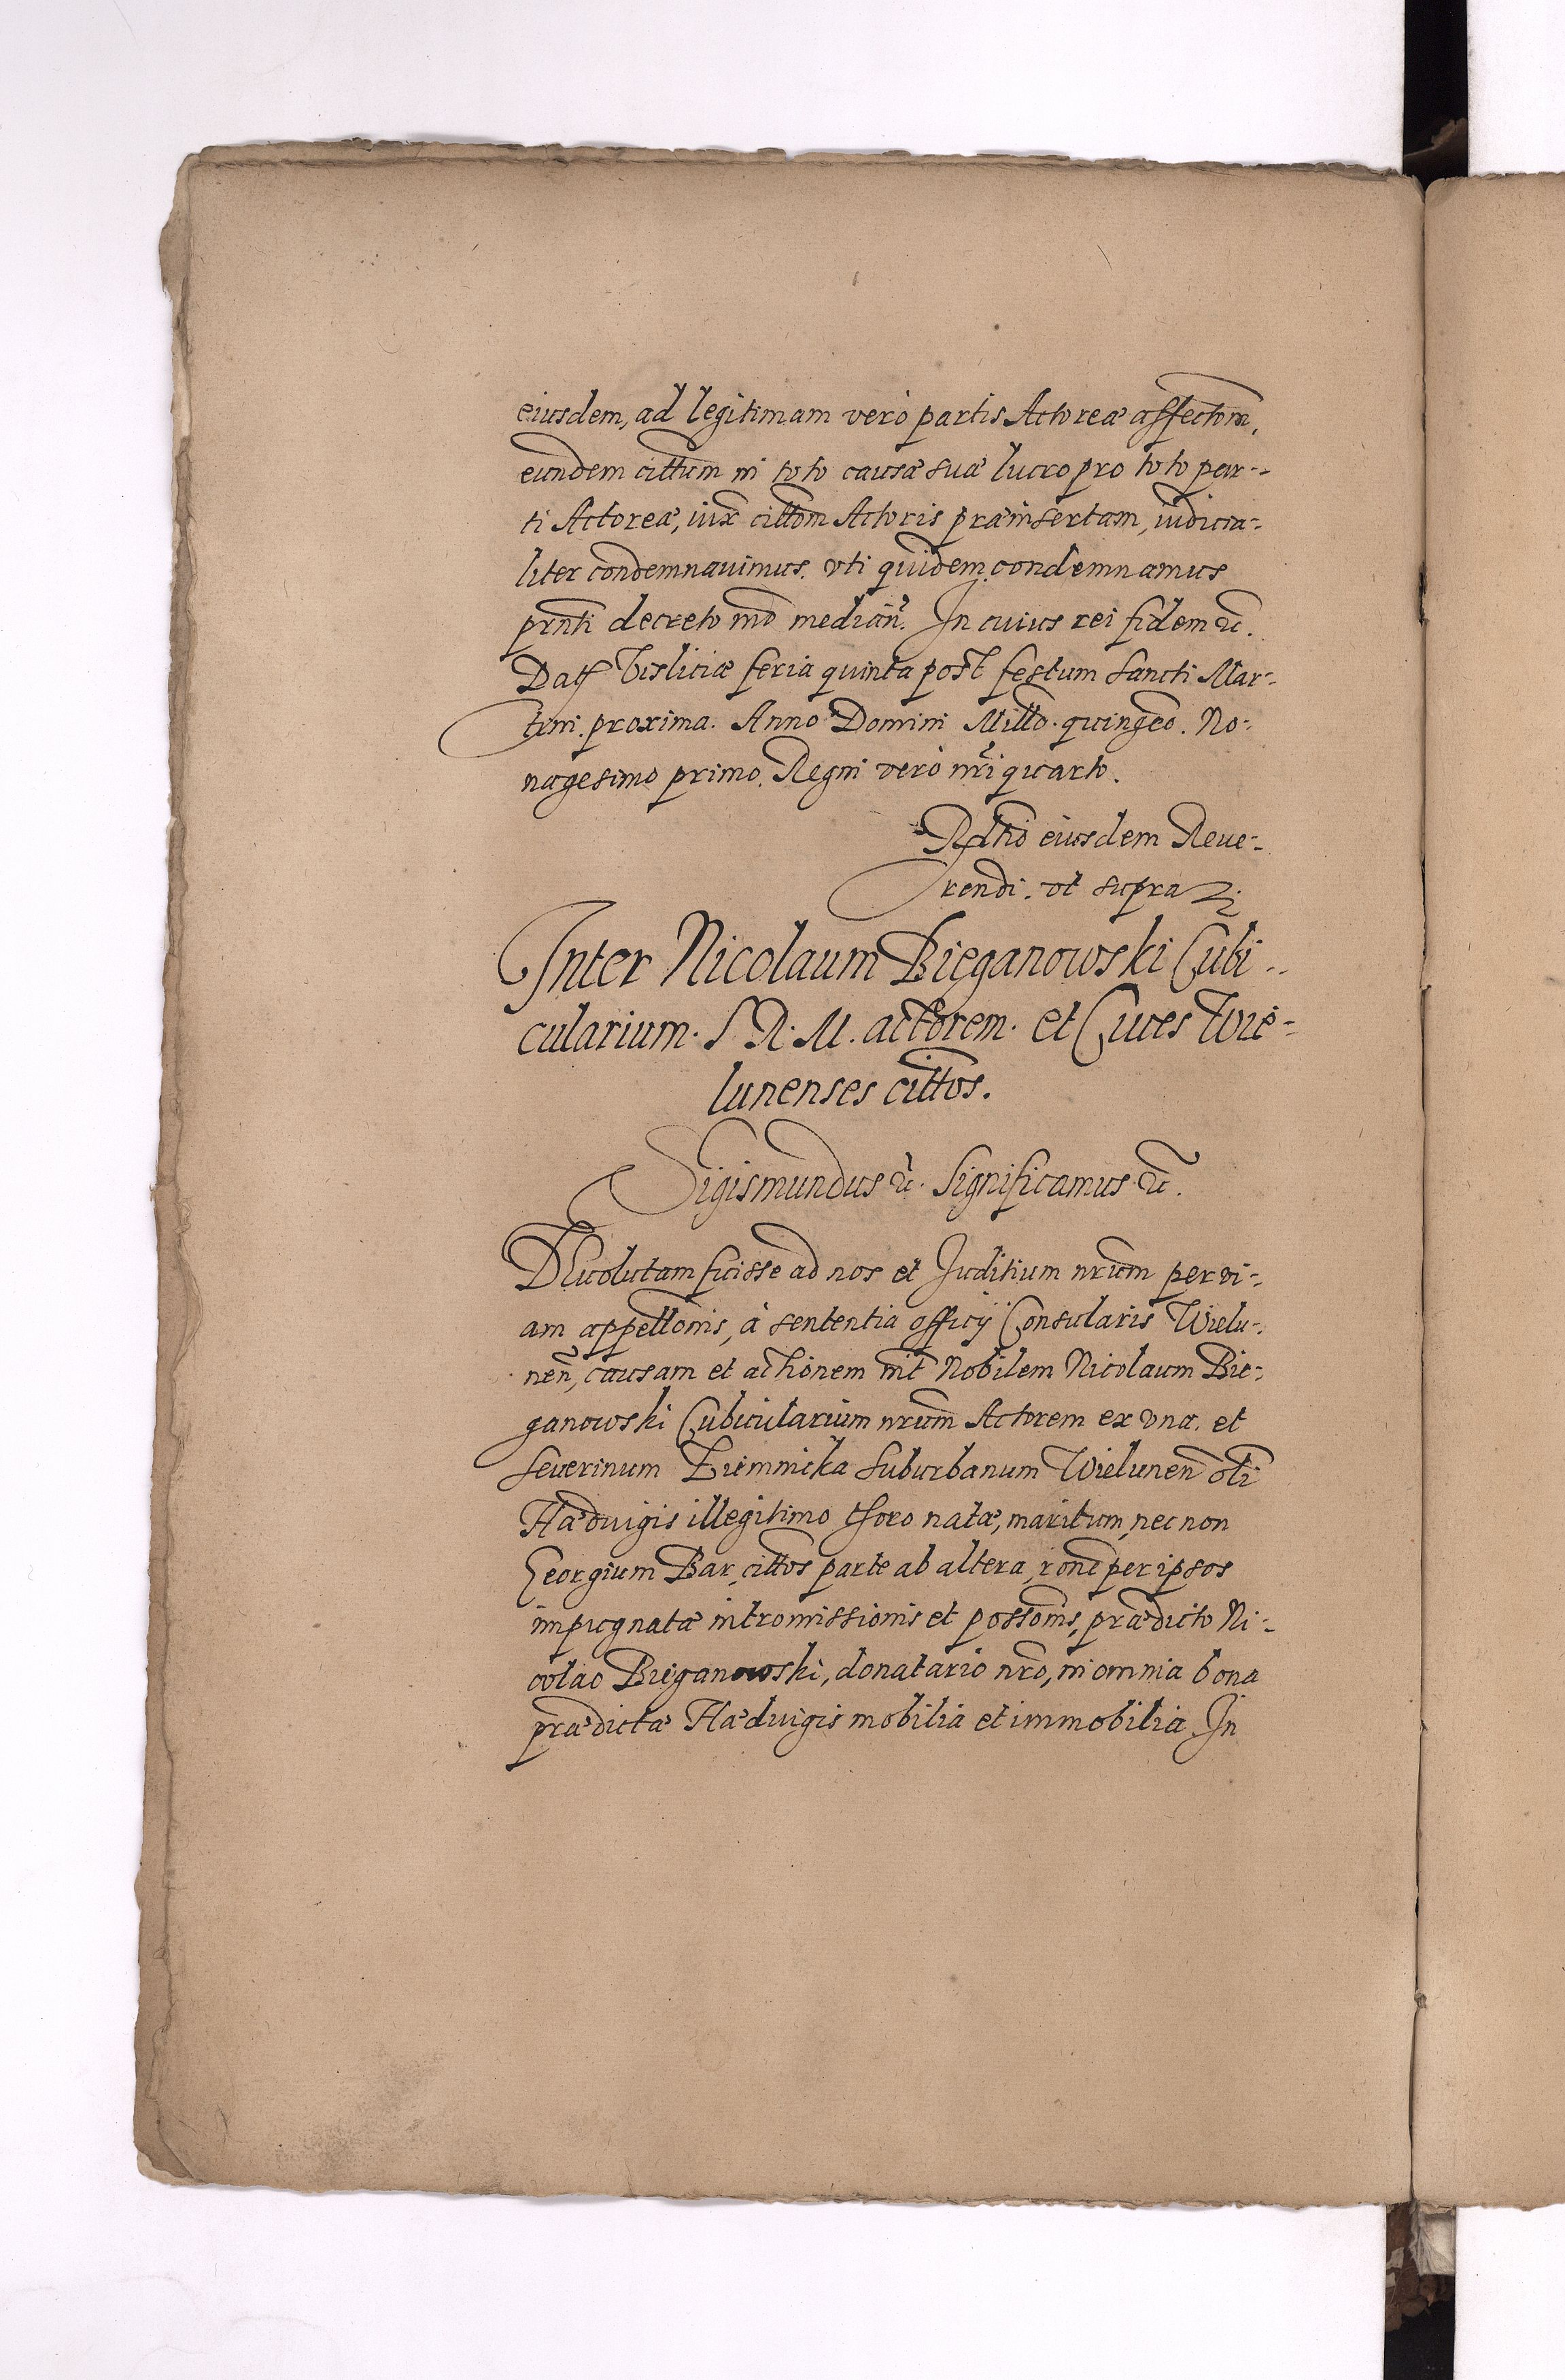 eiusdem, ad legitimam verò partis Actoreæ affectõm,
eundem cittum in toto causæ suæ lucro pro toto par-
ti Actoreæ, iux cittõm Actoris præinsertam, iudicia-
liter condemnauimus. vti quidem condemnamus
prñti decreto mõ mediañ. In cuius rei fidem &c.
Dat Visliciæ feria quinta post festum Sancti Mar-
tini proxima. Anno Domini Millõ. quingẽo. No-
nagesimo primo. Regni verò nr̃i quarto.
Rltio eiusdem Reue-
rendi. vt supra
Inter Nicolaum Bieganowski Cubi-
cularium. S. R. M. actorem. et Ciues Wie-
lunenses cittõs.
Sigismundus &c. Significamus &c.
DEuolutam fuisse ad nos et Juditium nrũm per vi-
am appellõnis, à sententia officij Consularis Wielu-
neñ, causam et actionem int̃ Nobilem Nicolaum Bie-
ganowski Cubicularium nrũm Actorem ex vna. et
Seuerinum Suburbanum Wieluneñ oli
Hædvigis illegitimo thoro natæ, maritum, nec non
Georgium Bar, cittõs parte ab altera, rõne per ipsos
impugnatæ intromissionis et possõnis, prædicto Ni-
colao Bieganowski, donatario nrõ, in omnia bona
prædictæ Hædvigis mobilia et immobilia. In